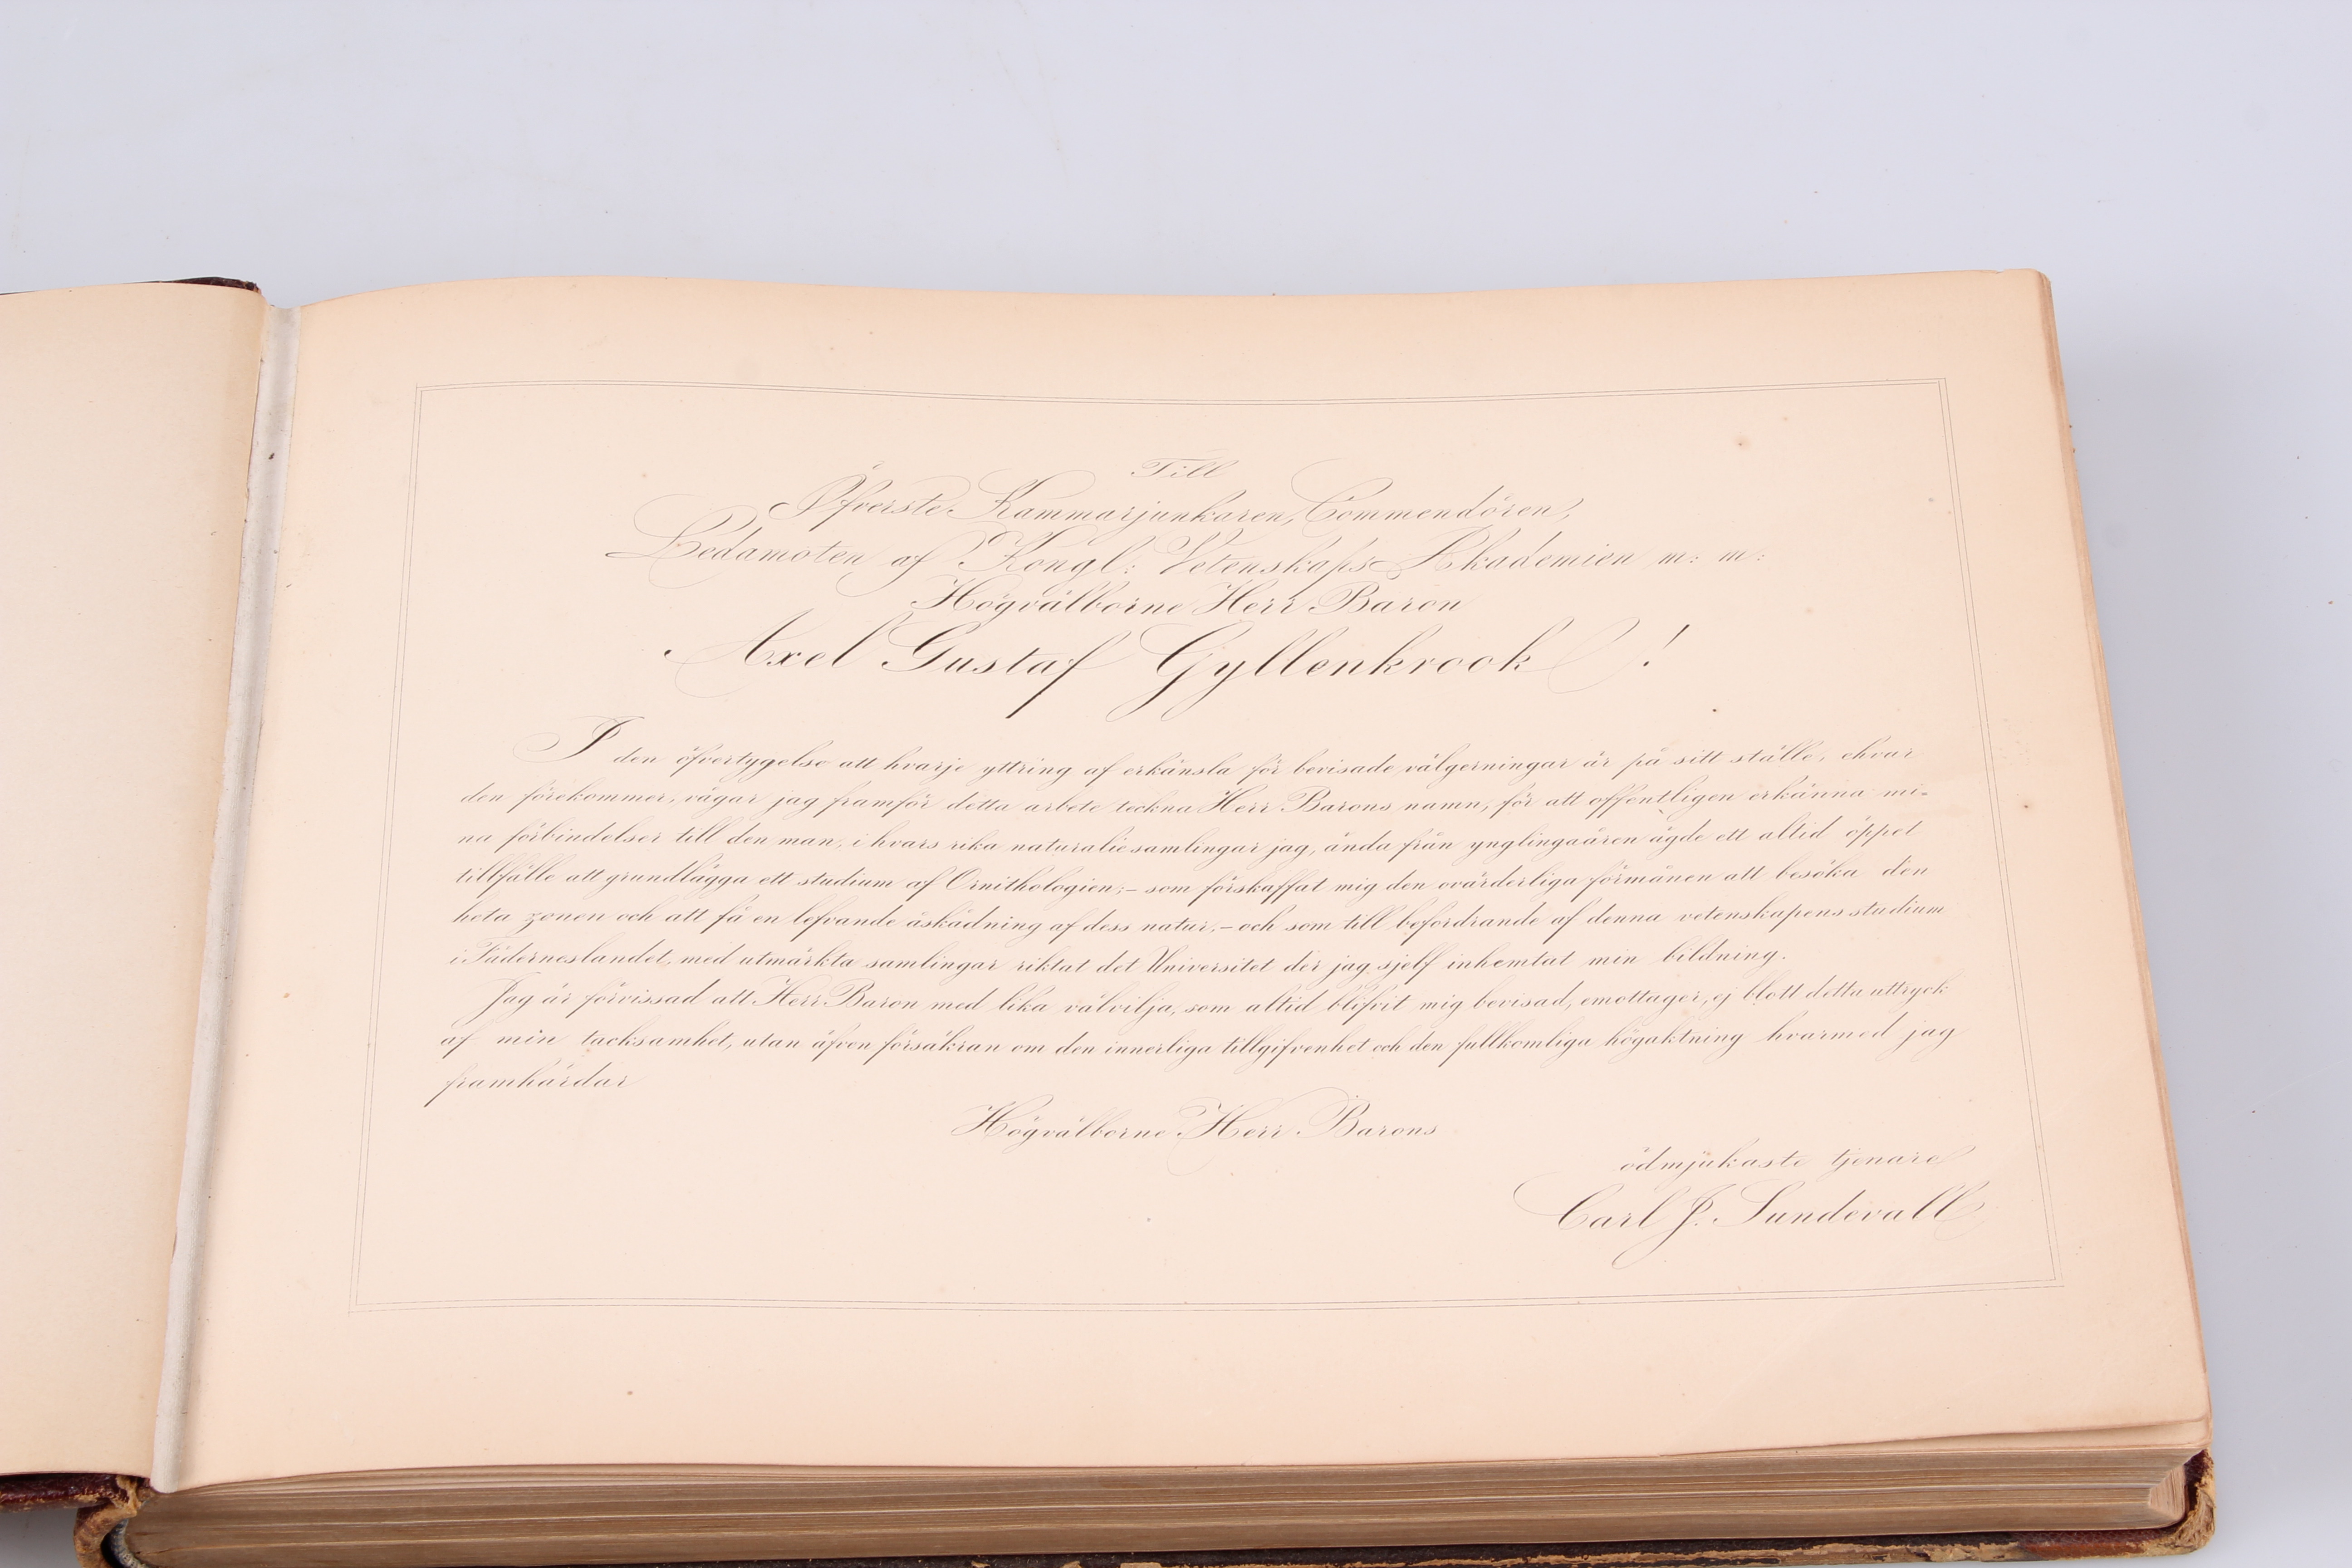 Till
Öfverste Kammarjunkaren, Commendören,
Ledamoten af Kongl: Vetenskaps Akademien m: m:
Högvälborne Herr Baron
Axel Gustaf Gyllenkrook!
I den öfvertygelse att hvarje yttring af erkänsla för bevisade välgerningar är på sitt ställe, ehvar
den förekommer, vågar jag framför detta arbete teckna Herr Barons namn, för att offentligen erkänna mi=
na förbindelser till den man, i hvars rika naturaliesamlingar jag, ända från ynglingaåren ägde ett altid öppet
tillfälle att grundlägga ett studium af Ornithologien;– som förskaffat mig den ovärderliga förmånen att besöka den
heta zonen och att få en lefvande åskådning af dess natur,– och som till befordrande af denna vetenskapens studium
i Fäderneslandet, med utmärkta samlingar riktat det Universitet der jag sjelf inhemtat min bildning.
Jag är förvissad att Herr Baron med lika välvilja, som altid blifvit mig bevisad, emottager, ej blott detta uttryck
af min tacksamhet, utan äfven försäkran om den innerliga tillgifvenhet och den fullkomliga högaktning hvarmed jag
framhärdar
Högvälborne Herr Barons
ödmjukaste tjenare
Carl J. Sundevall